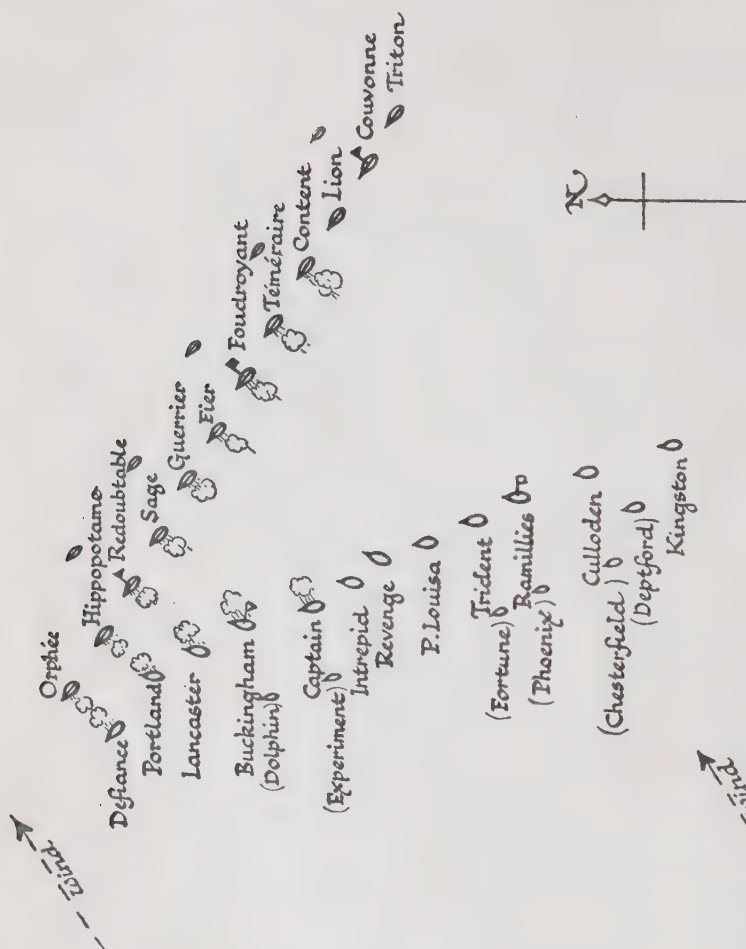 Orphée
Hippopotame
Redoubtable
Sage
Guerrier
Fier
Foudroyant
Téméraire
Content
Lion
Couvonne
Triton
Defiance
Portland
Lancaster
Buckingham
(Dolphin)
Captain
(Experiment)
Intrepid
Revenge
P. Louisa
Trident
(Fortune)
Ramillies
(Phoenix)
Culloden
(Chesterfield)
(Deptford)
Kingston
Wind
Wind
N